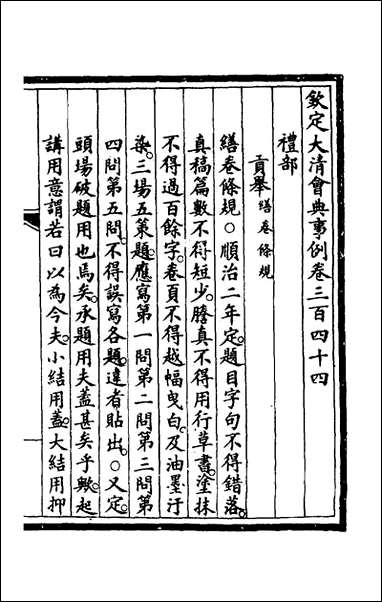 欽定大清會典事例卷三百四十四
禮部
貢舉繕卷條規
繕卷條規○順治二年定。題目字句不得錯落。
真稿篇數不得短少。謄真不得用行草書。塗抹
不得過百餘字。卷頁不得越幅曳白。及油墨汙
染。三場五策題。應寫第一問第二問第三問第
四問第五問。不得誤寫各題。違者貼出。○又定。
頭場破題用也焉矣。承題用夫蓋甚矣乎歟。起
講用意謂若曰以為今夫。小結用蓋。大結用抑